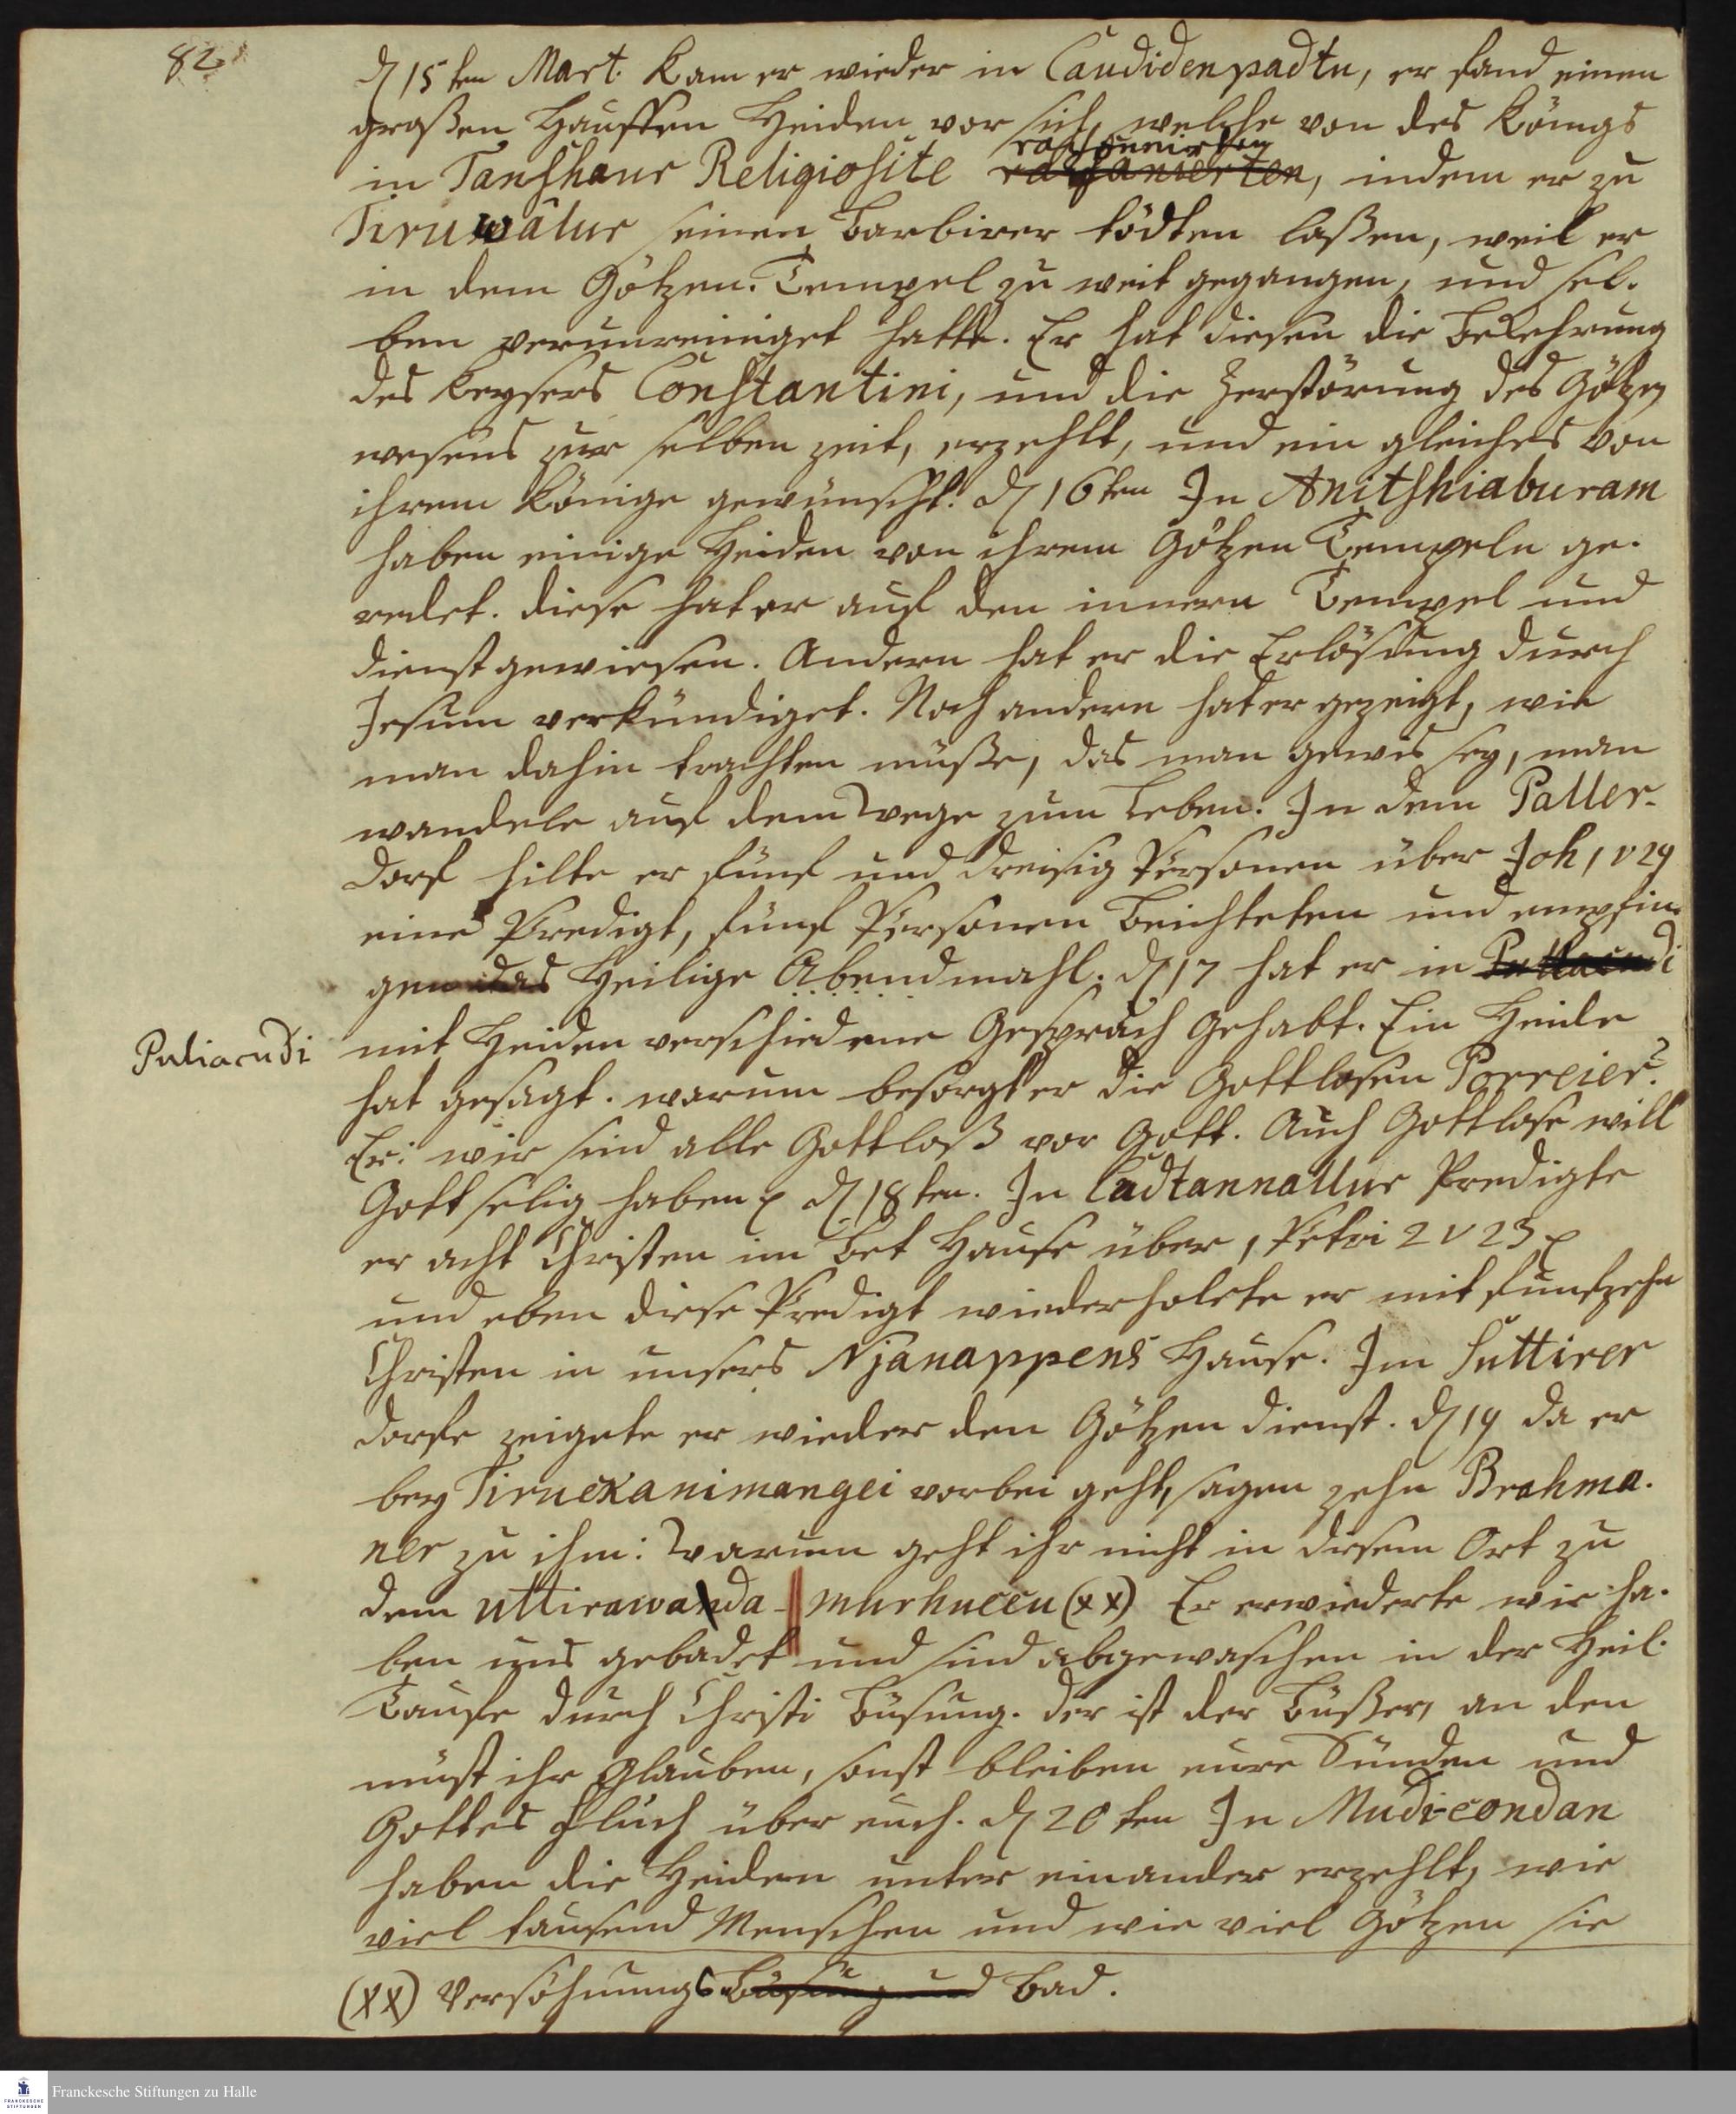 82
d 15ten Mart. kam er wieder in Caudidenpadtu, er fand einen
großen Hauffen Heiden vor sich, welche von des Königs
raisonnirten
in Tanshaur Religiosite raisonierten, indem er zu
Tiruwâlur seinen Barbirer tödten laßen, weil er
in dem Götzen-Tempel zu weit gegangen, und sel-
ben verunreiniget hatte. Er hat diesen die Bekehrung
des Keysers Constantini, und die Zerstörung des Götzen
wesens zur selben zeit, erzehlt, und ein gleiches von
ihrem Könige gewünscht. d 16ten In Anitshiaburam
haben einige Heiden von ihrem Götzen Tempeln ge-
redet. diese hat er auf den innern Tempel und
dienst gewiesen. Andern hat er die Erlösung durch
Jesum verkündiget. Noch andern hat er gezeigt, wie
man dahin trachten müße, das man gewis sey, man
wandele auf dem Wege zum Leben. In dem Paller-
dorf hilte er fünf und dreisig Personen über Joh 1 v 29
eine Predigt, fünf Personen beichteten und empfin-
gen das Heilige Abendmahl. d 17 hat er in
Puliacudi
mit Heiden verschiedene Gespräch gehabt. Ein Heide
hat gesagt. warum besorgt er die Gottlosen Porreier?
Er: wir sind alle Gottloß vor Gott. Auch Gottlose will
Gott selig haben p d 18ten. In Cadtannallur Predigte
er acht Christen im Bet Hause über 1 Petri 2 v 23 p
und eben diese Predigt wiederholete er mit funfzehn
Christen in unsers Njanappens Hause. Im Suttirer
dorfe zeigete er wieder den Götzen dienst. d 19 da er
bey Tiruckanimangei vorbei geht, sagen zehn Brahma-
ner zu ihm: Warum geht ihr nicht in diesem Ort zu
dem uttirawada-murhuccu (xx) Er erwiederte wir ha-
ben uns gebadet und sind abgewaschen in der Heil.
Taufe durch Christi Büsung. der ist der Büßer, an den
müst ihr glauben, sonst bleiben eure Sünden und
Gottes Fluch über euch. d 20ten In Mudi-condan
haben die Heiden unter einander erzehlt, wie
viel tausend Menschen und wie viel Götzen sie
(xx) Versöhnungs Büsung und bad.
Franckesche Stiftungen zu Halle